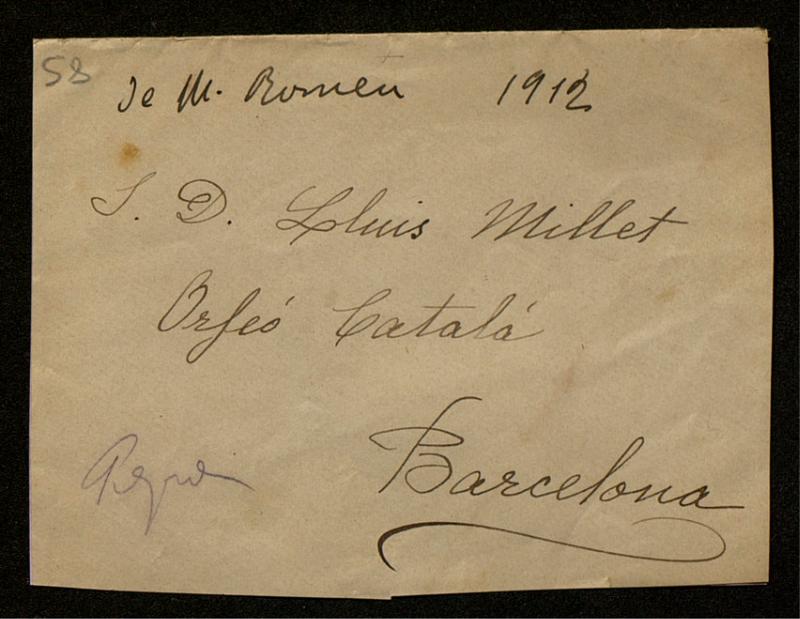 58
de M. Romeu 1912
S. D. Lluis Millet
Orfeó Catalá
Barcelona